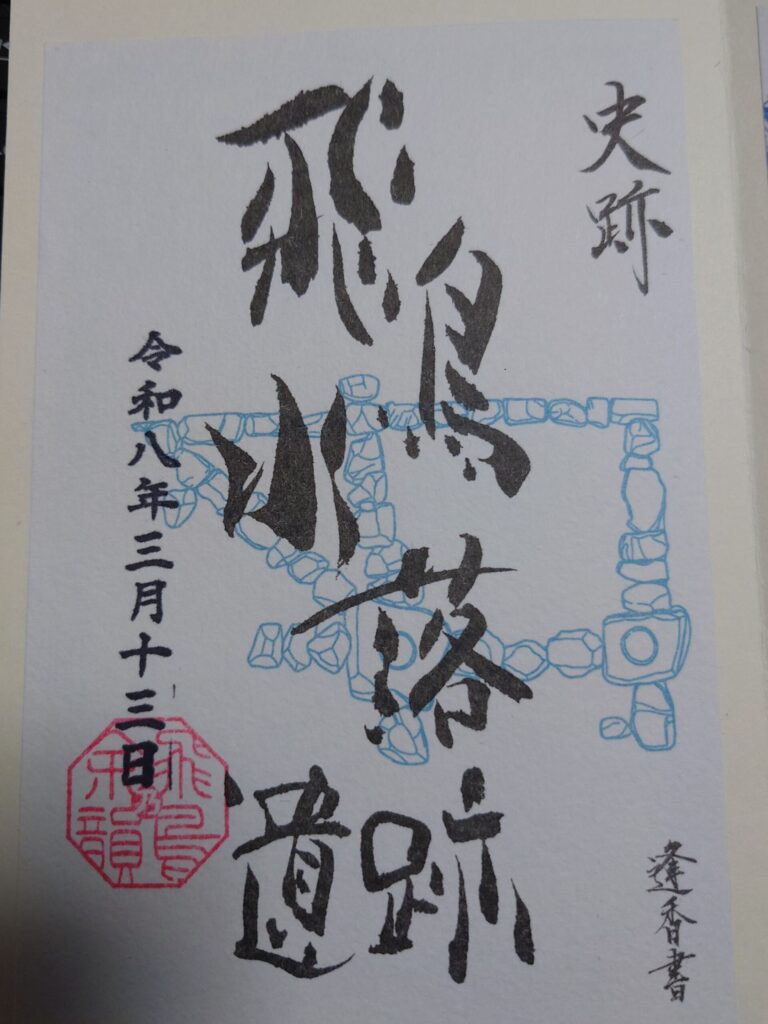 史跡
飛鳥
水落
遺跡
令和八年三月十三日
飛鳥
余韻
蓬香書